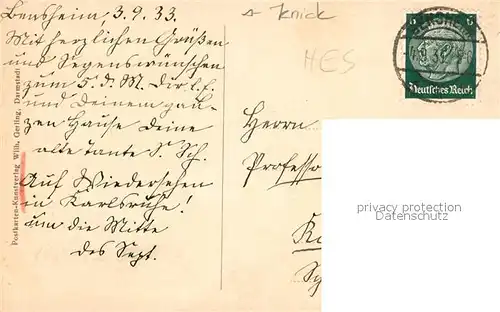 Bensheim, 3.9.33.
Mit herzlichen Grüßen
und Segenswünschen
zum 5. d. M. Dir, l. E.
und Deinem gan-
zen Hause Deine
alte Tante S. Sch.
Auf Wiedersehen
in Karlsruhe!
um die Mitte
des Sept.
Postkarten-Kunstverlag Wilh. Gerling, Darmstadt
Knick
HES
6 6
BENSHEIM
Deutsches Reich
Herrn
Professo
privacy protection
Datenschutz
Ka